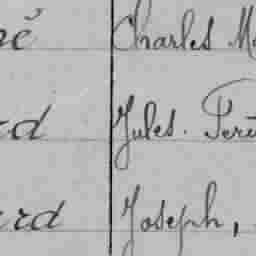 Charles
rd Jules.
rd Joseph,